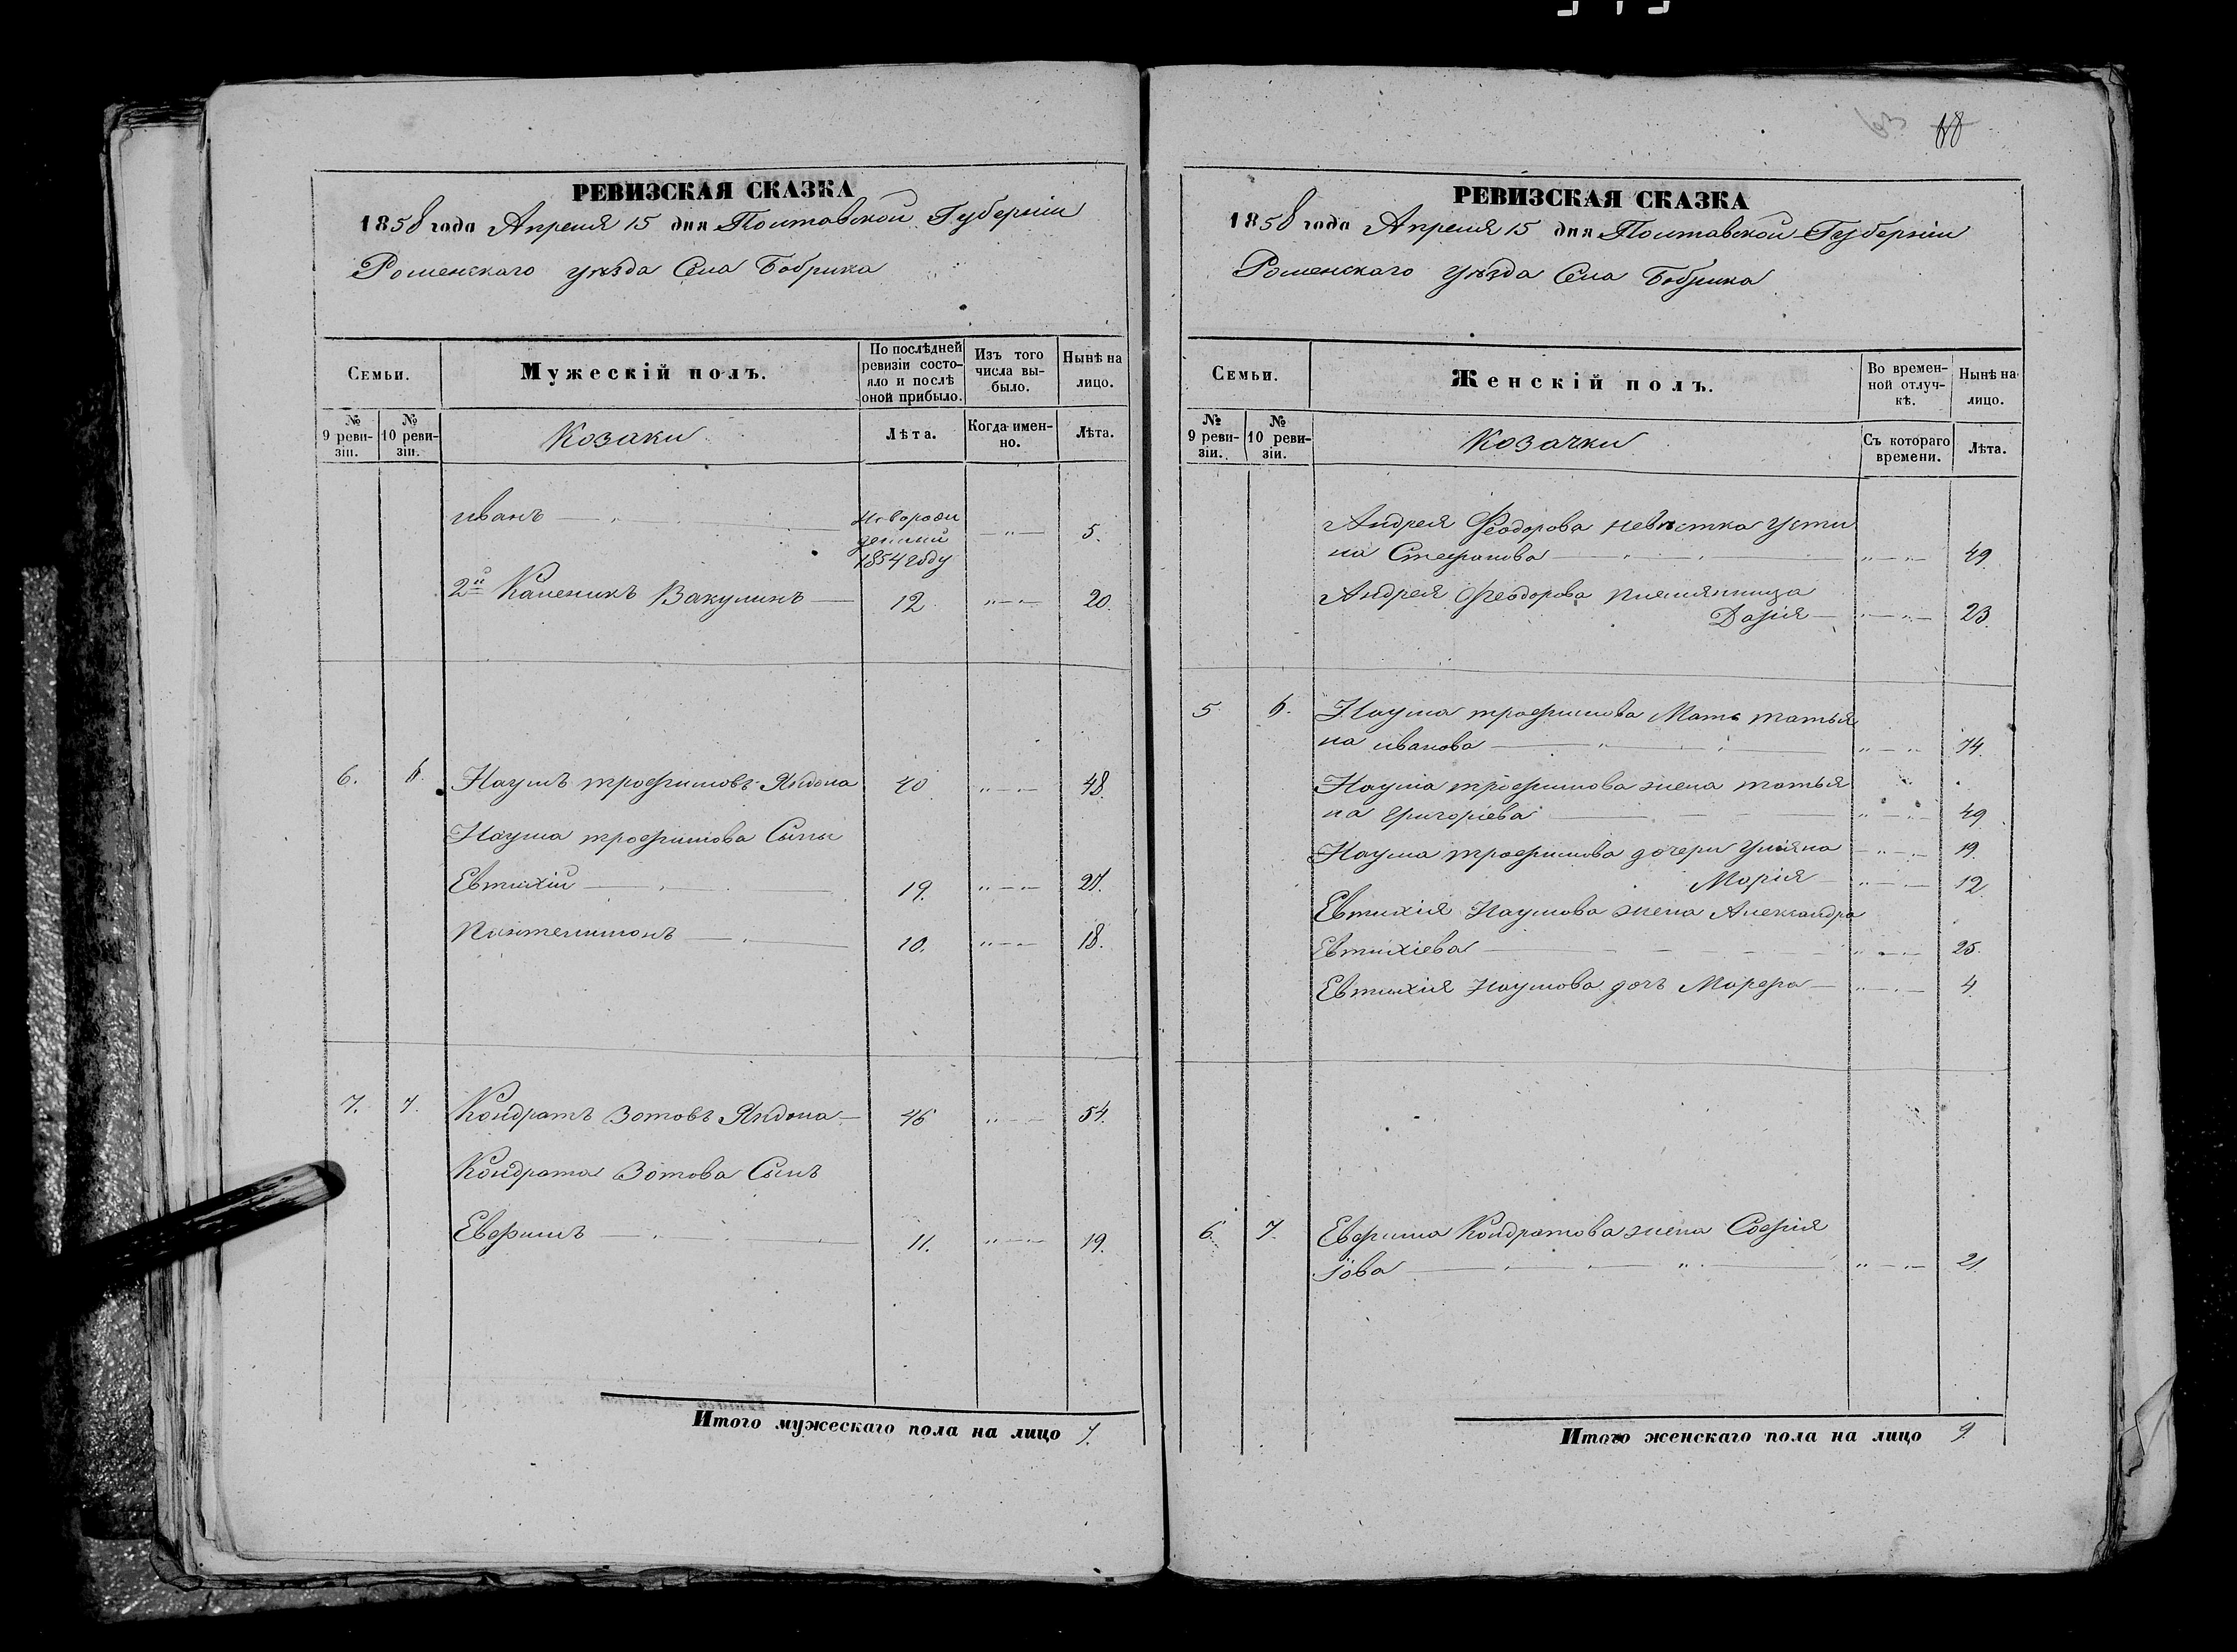 63 68
РЕВИЗСКАЯ СКАЗКА
1858 года Апреля 15 дня Полтавской Губерніи
Роменскаго уѣзда Села Бобрика
Семьи.
Мужескій полъ.
По послѣдней ревизіи состояло и послѣ оной прибыло.
Изъ того числа выбыло.
Нынѣ на лицо.
№ 9 ревизіи.
№ 10 ревизіи.
Козаки
Лѣта.
Когда именно.
Лѣта.
иванъ новорожденный 1854 году 5.
2й Каленикъ Вакулинъ 12 20.
6. 6. Наумъ трофимовъ 40 48.
Наума трофимова Сыны
Евтихій 19. 27.
Пантелимонъ 10. 18.
7. 7. Кондратъ Зотовъ 46 54.
Кондрата Зотова Сынъ
Евфимъ 11. 19.
Итого мужескаго пола на лицо 7.
РЕВИЗСКАЯ СКАЗКА
1858 года Апреля 15 дня Полтавской Губерніи
Роменскаго уѣзда Села Бобрика
Семьи.
Женскій полъ.
Во временной отлучкѣ.
Нынѣ на лицо.
№ 9 ревизіи.
№ 10 ревизіи.
Козачки
Съ котораго времени.
Лѣта.
Андрея Феодорова невѣстка Усти
на Стефанова 49.
Андрея Феодорова племянница
Дарія 23.
5. 6. Наума трофимова Мать татья
на иванова 74.
Наума трофимова жена татья
на Григоріева 49
Наума трофимова дочери Уліяна 19.
Марія 12
Евтихія Наумова жена Александра
Евтихіева 25.
Евтихія Наумова дочь Марфа 4.
6. 7. Евфима Кондратова жена Софія
Іова 21.
Итого женскаго пола на лицо 9.